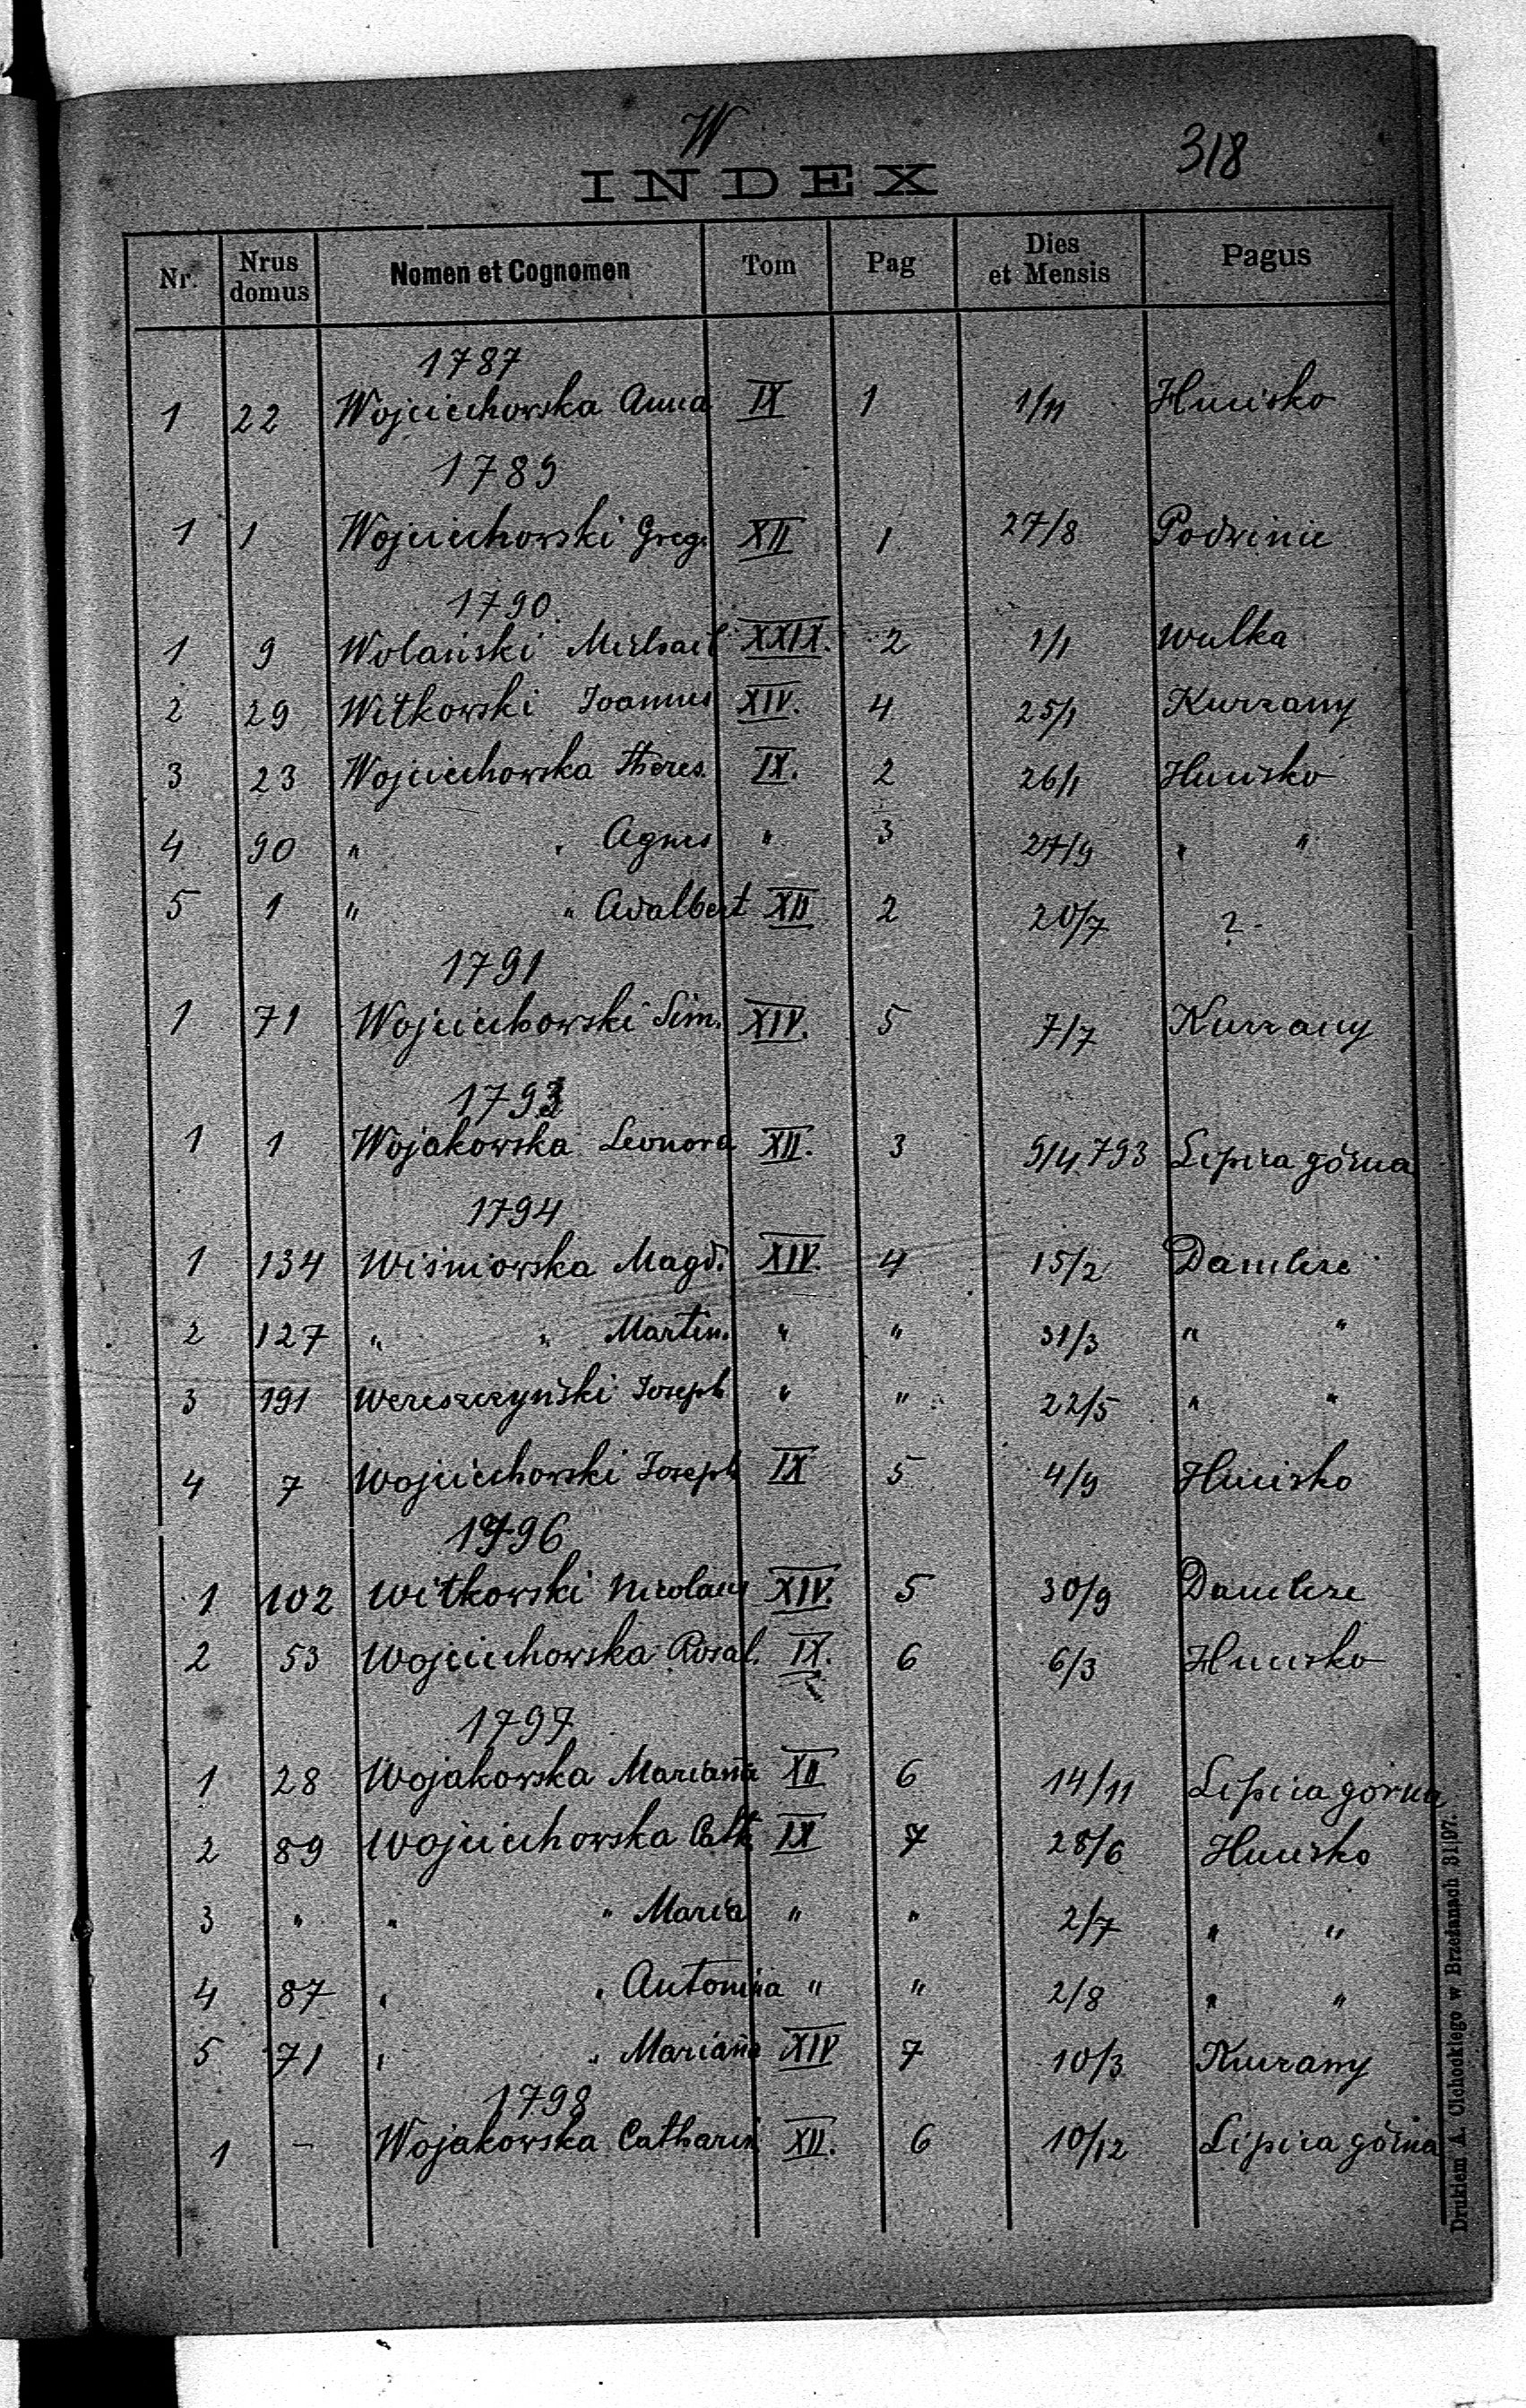 W
318
INDEX
Nr. Nrus domus Nomen et Cognomen Tom Pag Dies et Mensis Pagus
1787
1 22 Wojciechowska Anna IX 1 1/11 Hucisko
1789
1 1 Wojciechowski Greg. XII 1 27/8
1790.
1 9 Wolański Michael XXIX. 2 1/1 Wulka
2 29 Witkowski Joannes XIV. 4 25/1 Kurzany
3 23 Wojciechowska Theres. IX. 2 26/1 Hucisko
4 90 " " Agnes " 3 27/9 " "
5 1 " " Adalbert XII 2 20/7 ?
1791
1 71 Wojciechowski Sim. XIV. 5 7/7 Kurzany
1793
1 1 Wojakowska Leonora XII. 3 9/4 793 Lipica górna
1794
1 134 Wiśniowska Magd. XIV. 4 15/2
2 127 " " Martin. " " 31/3 " "
3 191 Wereszczyński Joseph " " 22/5 " "
4 7 Wojciechowski Joseph IX 5 4/9 Hucisko
1796
1 102 Witkowski Nicolaus XIV. 5 30/9
2 53 Wojciechowska Rosal. IX. 6 6/3 Hucisko
1797
1 28 Wojakowska Marianna XII 6 14/11 Lipica górna
2 89 Wojciechowska Cath. IX 7 28/6 Hucisko
3 " " " Maria " " 2/7 " "
4 87 " " Antonina " " 2/8 " "
5 71 " " Marianna XIV 7 10/3 Kurzany
1798
1 – Wojakowska Catharin XII. 6 10/12 Lipica górna
Drukiem A. Cichockiego w Brzeżanach 31|97.